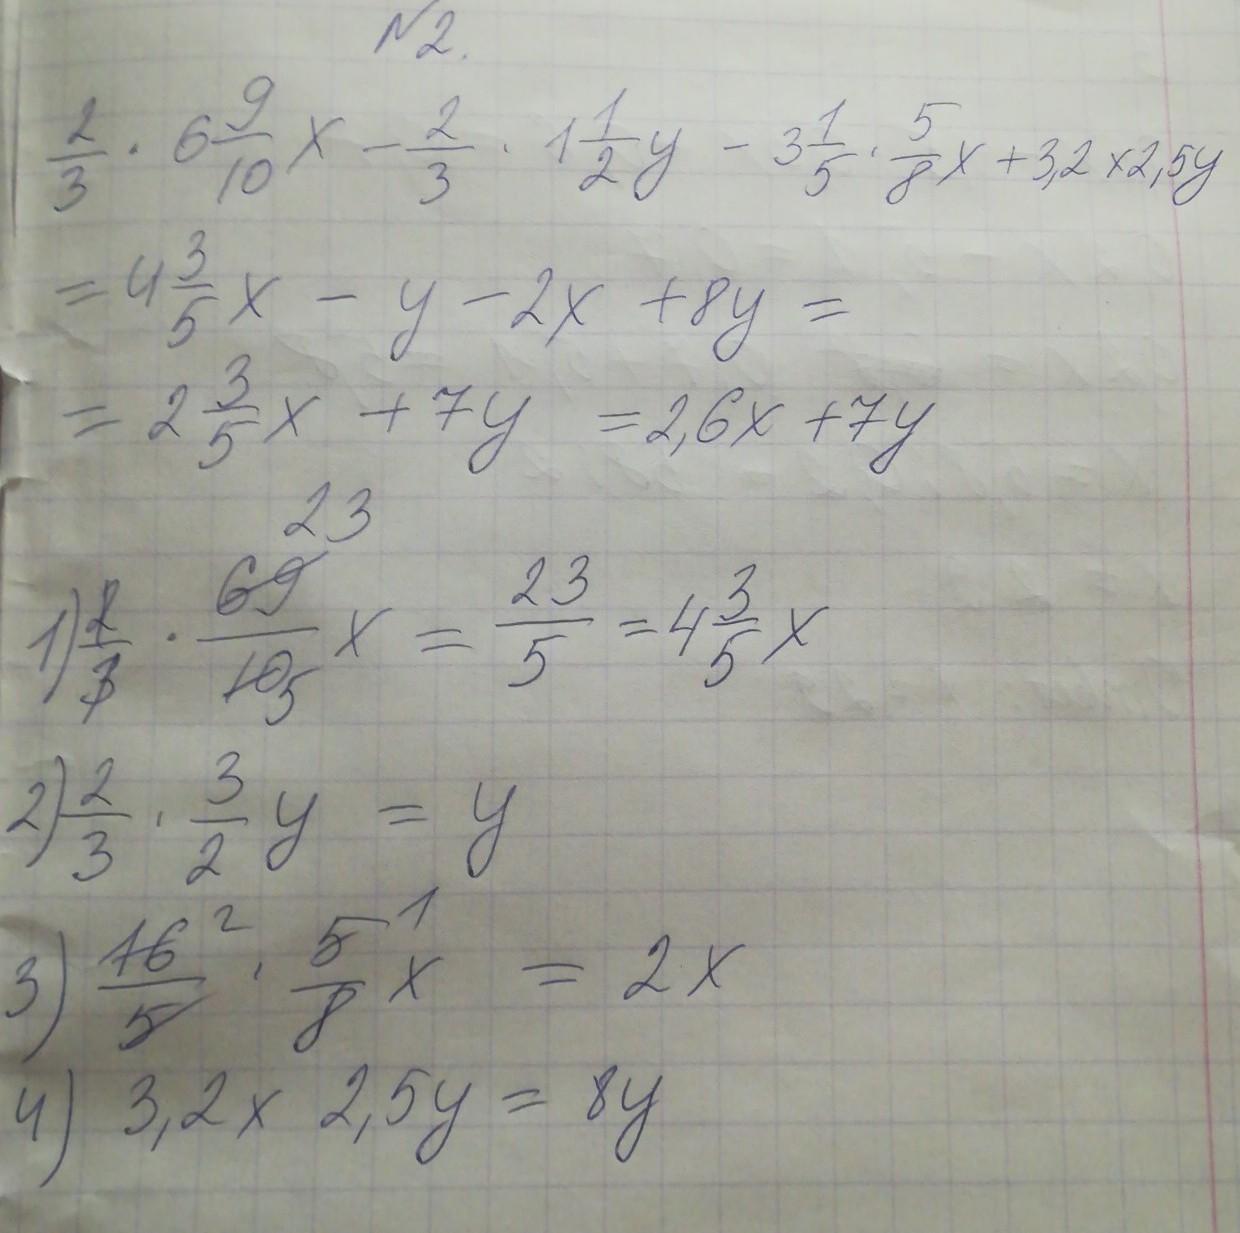 №2.
2/3 · 6 9/10 x - 2/3 · 1 1/2 y - 3 1/5 · 5/8 x + 3,2 × 2,5y
= 4 3/5 x - y - 2x + 8y =
= 2 3/5 x + 7y = 2,6x + 7y
23
1) 2/3 · 69/10 x = 23/5 = 4 3/5 x
5
2) 2/3 · 3/2 y = y
3) 16/5 2 · 5/8 1 x = 2x
4) 3,2 × 2,5y = 8y